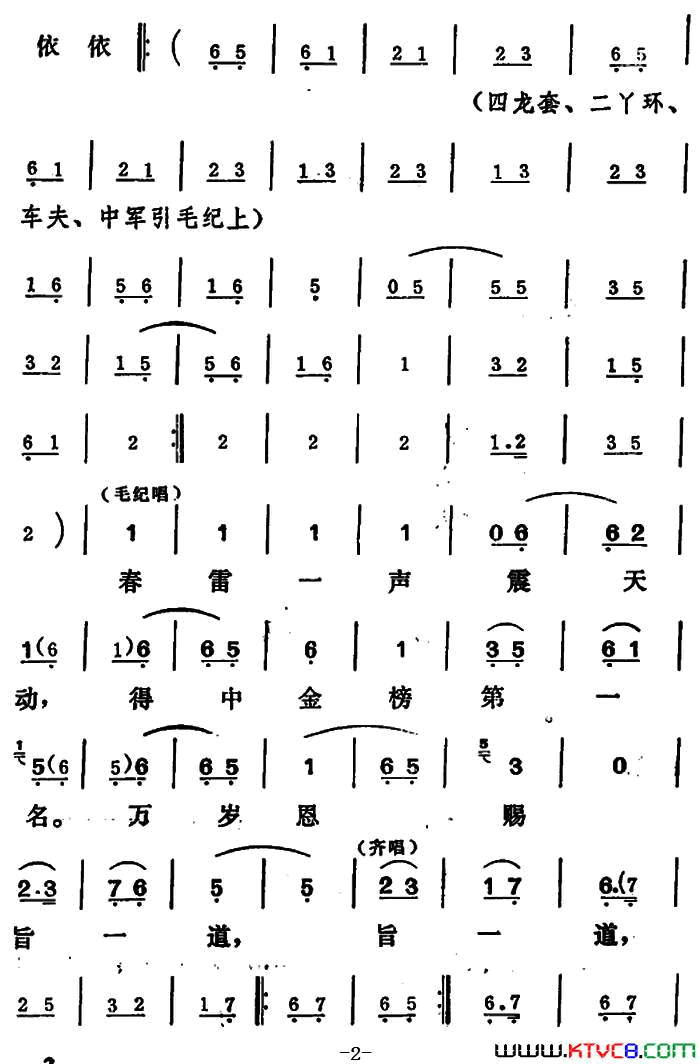 依依 ‖: ( 6 5 | 6 1 | 2 1 | 2 3 | 6 5 |
(四龙套、二丫环、
6 1 | 2 1 | 2 3 | 1 3 | 2 3 | 1 3 | 2 3 |
车夫、中军引毛纪上)
1 6 | 5 6 | 1 6 | 5 | 0 5 | 5 5 | 3 5 |
3 2 | 1 5 | 5 6 | 1 6 | 1 | 3 2 | 1 5 |
6 1 | 2 :‖ 2 | 2 | 2 | 1.2 | 3 5 |
(毛纪唱)
2 ) | 1 | 1 | 1 | 1 | 0 6 | 6 2 |
春 雷 一 声 震 天
1 (6 | 1) 6 | 6 5 | 6 | 1 | 3 5 | 6 1 |
动, 得 中 金 榜 第 一
1 5 (6 | 5) 6 | 6 5 | 1 | 6 5 | 5 3 | 0 |
名。 万 岁 恩 赐
(齐唱)
2.3 | 7 6 | 5 | 5 | 2 3 | 1 7 | 6.(7 |
旨 一 道, 旨 一 道,
2 5 | 3 2 | 1 7 ‖: 6 7 | 6 5 :‖ 6.7 | 6 7 |
-2-
WWW.KTVC8.COM